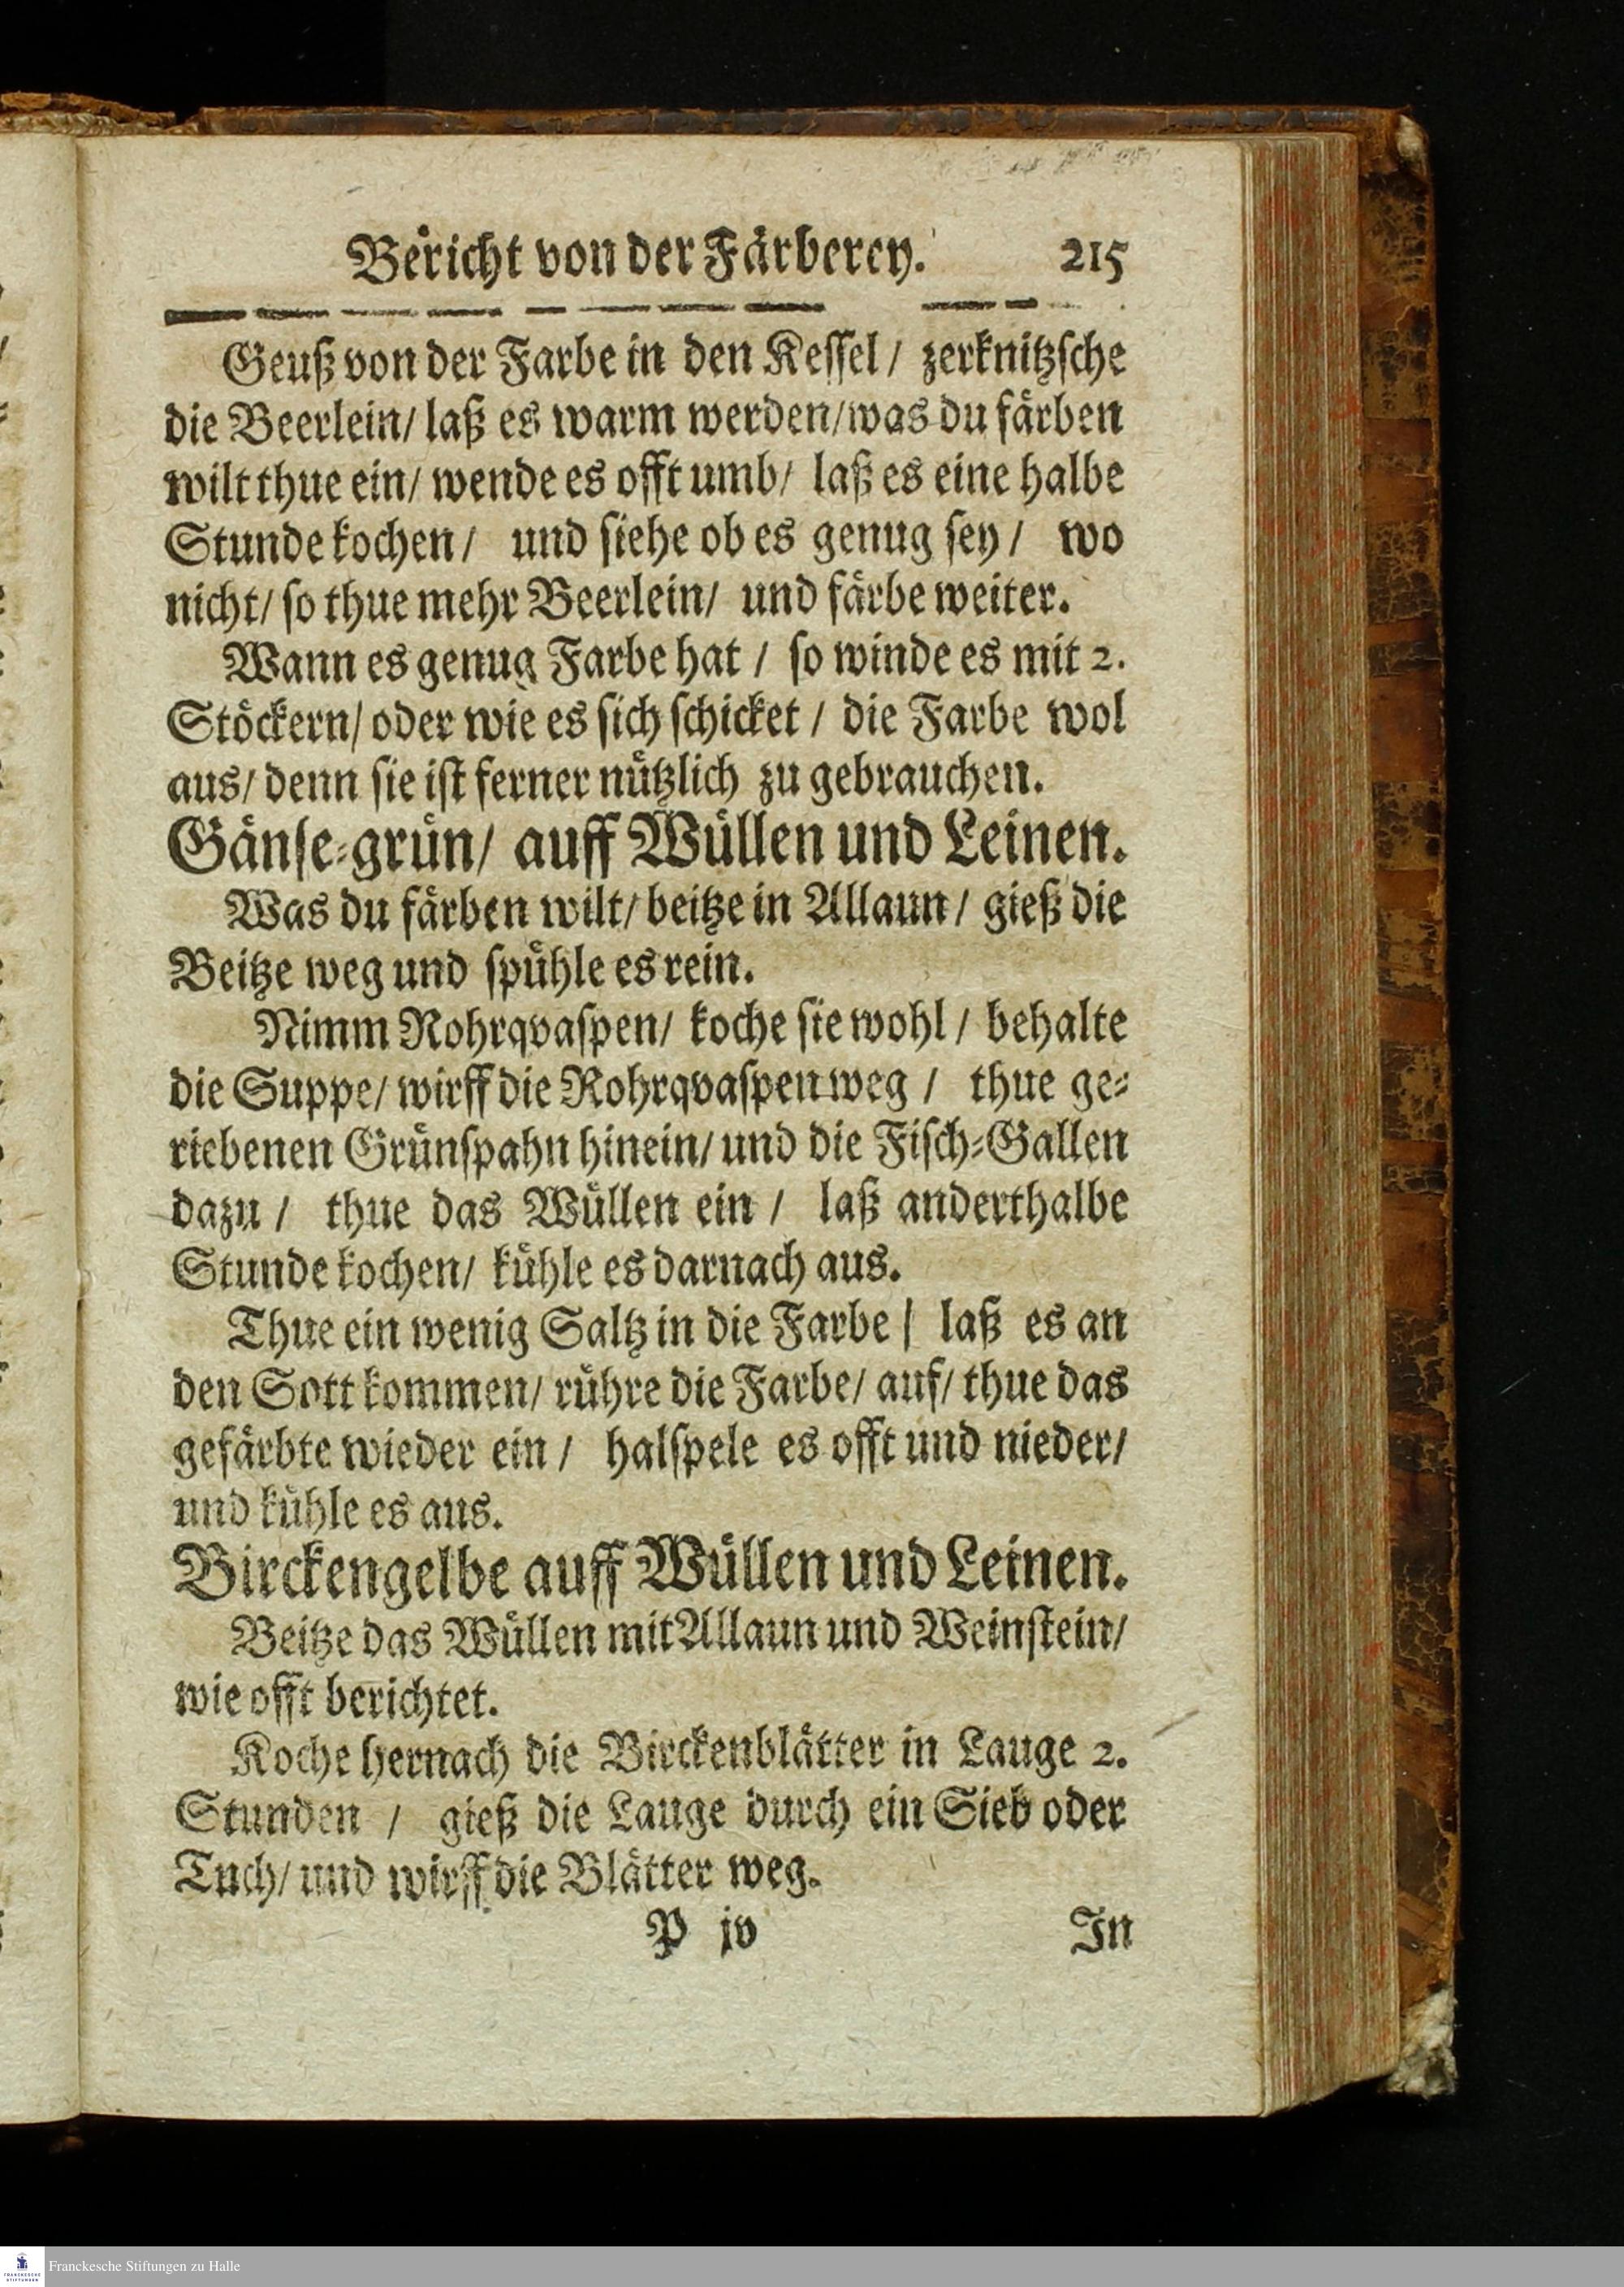 Bericht von der Färberey. 215
Geuß von der Farbe in den Kessel / zerknitzsche
die Beerlein/ laß es warm werden/was du färben
wilt thue ein/ wende es offt umb/ laß es eine halbe
Stunde kochen / und siehe ob es genug sey / wo
nicht/ so thue mehr Beerlein/ und färbe weiter.
Wann es genug Farbe hat / so winde es mit 2.
Stöckern/ oder wie es sich schicket / die Farbe wol
aus/ denn sie ist ferner nützlich zu gebrauchen.
Gänse-grün/ auff Wüllen und Leinen.
Was du färben wilt/ beitze in Allaun / gieß die
Beitze weg und spühle es rein.
Nimm Rohrqvaspen/ koche sie wohl / behalte
die Suppe/ wirff die Rohrqvaspen weg / thue ge-
riebenen Grünspahn hinein/ und die Fisch-Gallen
dazu / thue das Wüllen ein / laß anderthalbe
Stunde kochen/ kühle es darnach aus.
Thue ein wenig Saltz in die Farbe / laß es an
den Sott kommen/ rühre die Farbe/ auf/ thue das
gefärbte wieder ein / halspele es offt und nieder/
und kühle es aus.
Birckengelbe auff Wüllen und Leinen.
Beitze das Wüllen mit Allaun und Weinstein/
wie offt berichtet.
Koche hernach die Birckenblätter in Lauge 2.
Stunden / gieß die Lauge durch ein Sieb oder
Tuch/ und wirff die Blätter weg.
P iv In
Franckesche Stiftungen zu Halle
FRANCKESCHE
STIFTUNGEN